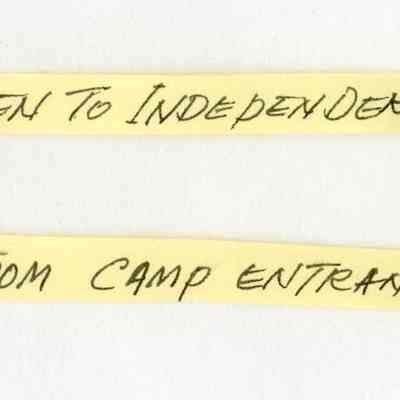 EN TO INDEPENDEN
OM CAMP ENTRAN